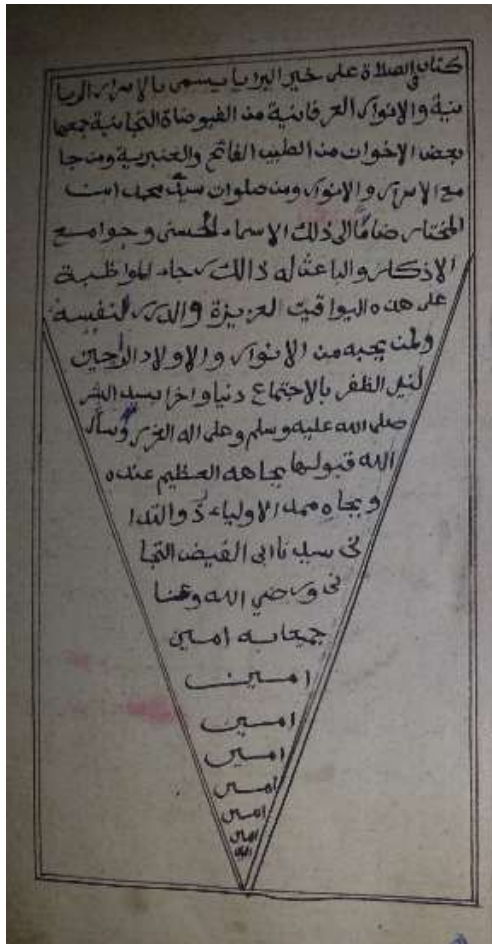 كتاب في الصلاة على خير البرايا يسمى بالاسرار الربا
نية والانوار العرفانية من الفيوضاة التجانية جمعها
بعض الاخوان من الطيب الفاتح والعنبرية ومن جا
مع الاسرار والانوار ومن صلوات سيد محمد ابن
المختار ضاما الى ذلك الاسماء الحسنى وجوامع
الاذكار والباعث له ذالك رجاء المواظبة
على هذه اليواقيت العزيزة والدرر النفيسة
ولمن يحبه من الانوار والاولاد الراجين
لنيل الظفر بالاجتماع دنيا واخرا بسيد البشر
صلى الله عليه وسلم وعلى اله الغرر وسأل
الله قبولها بجاهه العظيم عنده
وبجاه ممد الاولياء ذو التدا
نى سيدنا ابى الفيض التجا
نى ورضي الله وعنا
جميعا به امين
امين
امين
امين
امين
امين
امين
امين